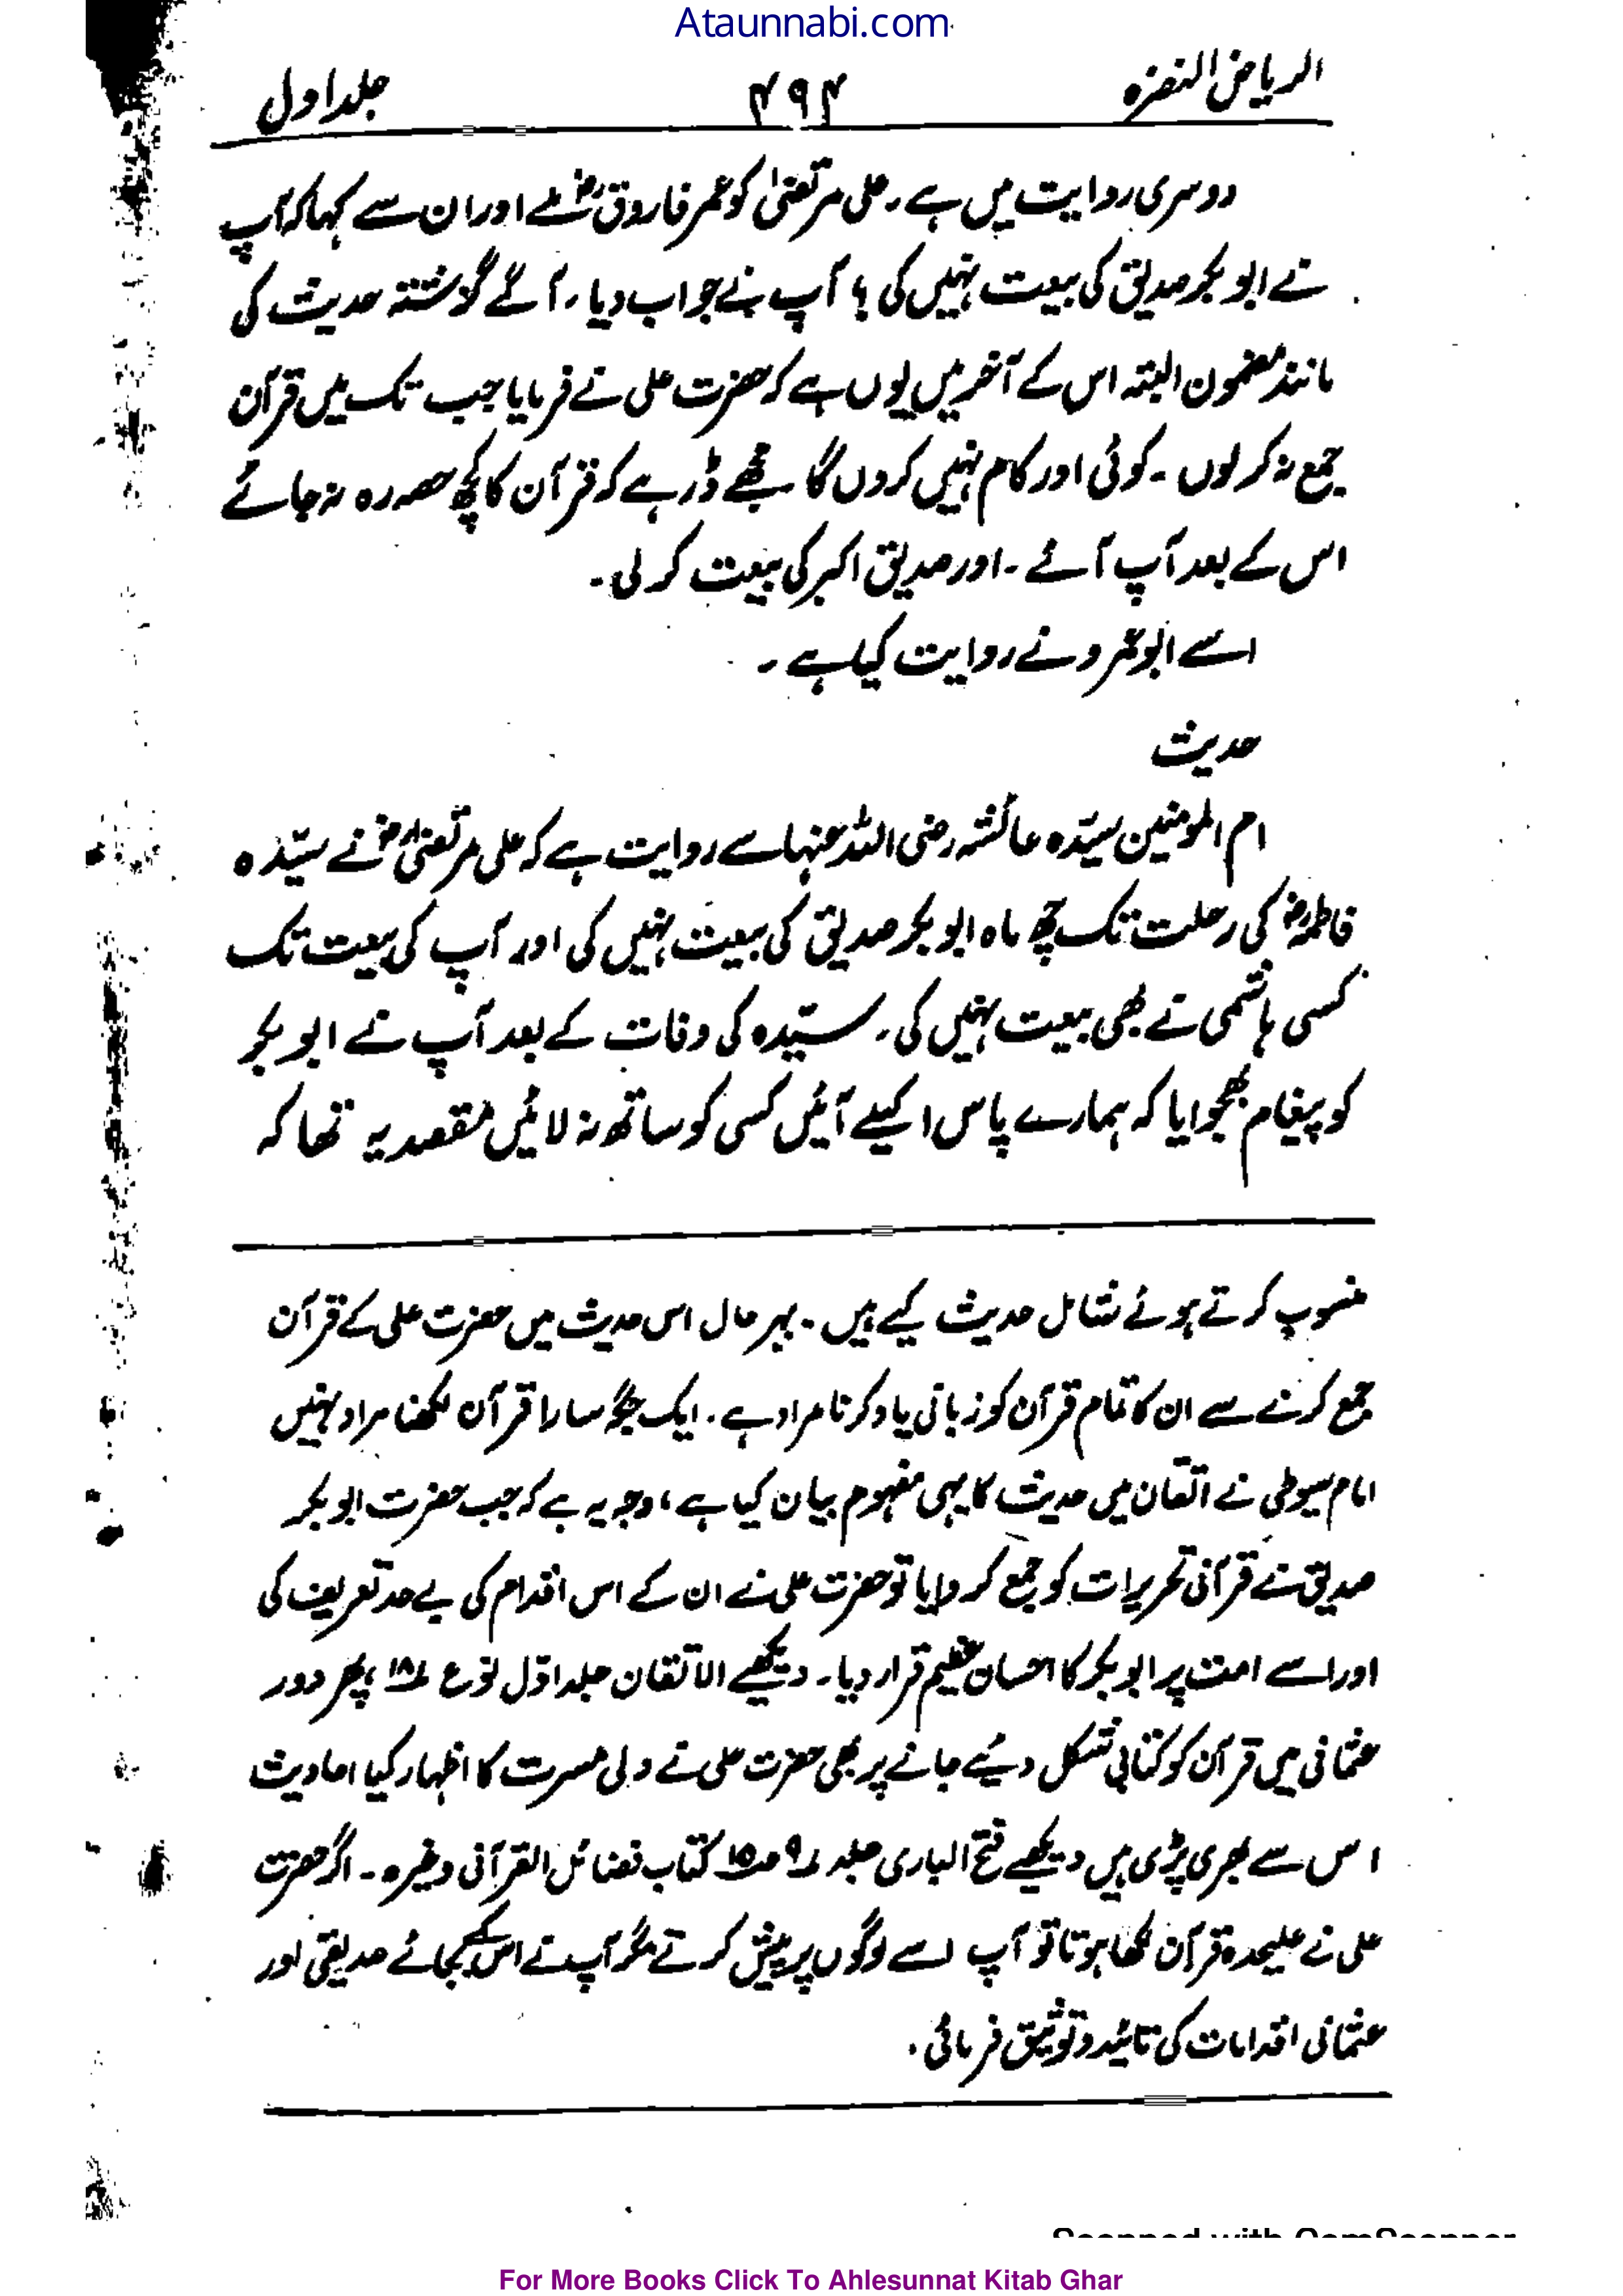 Ataunnabi.com
الریاض النضرہ ۴۹۴ جلد اول
دوسری روایت میں ہے۔ علی مرتضیٰ کو عمر فاروقؓ ملے اور ان سے کہا کہ آپ
نے ابو بکر صدیق کی بیعت نہیں کی؟ آپ نے جواب دیا۔ آگے گزشتہ حدیث کی
مانند مضمون البتہ اس کے آخر میں یوں ہے کہ حضرت علی نے فرمایا جب تک میں قرآن
جمع نہ کر لوں۔ کوئی اور کام نہیں کروں گا مجھے ڈر ہے کہ قرآن کا کچھ حصہ رہ نہ جائے
اس کے بعد آپ آئے۔ اور صدیق اکبر کی بیعت کر لی۔
اسے ابو عمرو نے روایت کیا ہے۔
حدیث
ام المومنین سیّدہ عائشہ رضی اللہ عنہا سے روایت ہے کہ علی مرتضیٰؓ نے سیّدہ
فاطمہؓ کی رحلت تک چھ ماہ ابو بکر صدیق کی بیعت نہیں کی اور آپ کی بیعت تک
کسی ہاشمی نے بھی بیعت نہیں کی۔ سیّدہ کی وفات کے بعد آپ نے ابو بکر
کو پیغام بھجوایا کہ ہمارے پاس اکیلے آئیں کسی کو ساتھ نہ لائیں مقصد یہ تھا کہ
منسوب کرتے ہوئے شامل حدیث کیے ہیں۔ بہر حال اس حدیث میں حضرت علی کے قرآن
جمع کرنے سے ان کا تمام قرآن کو زبانی یاد کرنا مراد ہے۔ ایک جگہ سارا قرآن لکھنا مراد نہیں
امام سیوطی نے اتقان میں حدیث کا یہی مفہوم بیان کیا ہے، وجہ یہ ہے کہ جب حضرت ابو بکر
صدیق نے قرآنی تحریرات کو جمع کروایا تو حضرت علی نے ان کے اس اقدام کی بے حد تعریف کی
اور اسے امت پر ابو بکر کا احسان عظیم قرار دیا۔ دیکھیے الاتقان جلد اوّل نوع ۱۸ ؛ پھر دور
عثمانی میں قرآن کو کتابی شکل دیئے جانے پر بھی حضرت علی نے دلی مسرت کا اظہار کیا احادیث
اس سے بھری پڑی ہیں دیکھیے فتح الباری جلد ۹ ص۱۵ کتاب فضائل القرآنی وغیرہ۔ اگر حضرت
علی نے علیحدہ قرآن لکھا ہوتا تو آپ اسے لوگوں پر پیش کرتے مگر آپ نے اس کے بجائے صدیقی اور
عثمانی اقدامات کی تائید و توثیق فرمائی۔
Scanned with CamScanner
For More Books Click To Ahlesunnat Kitab Ghar